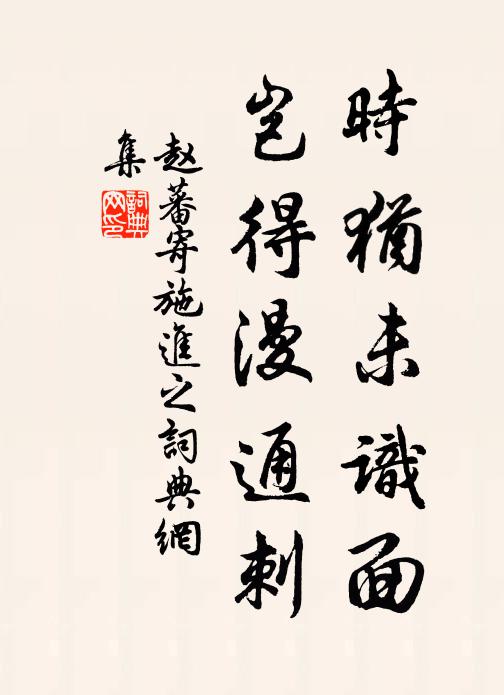 時猶未識面
豈得漫通刺
赵蕃寄施進之詞典網
集
詞典
网印